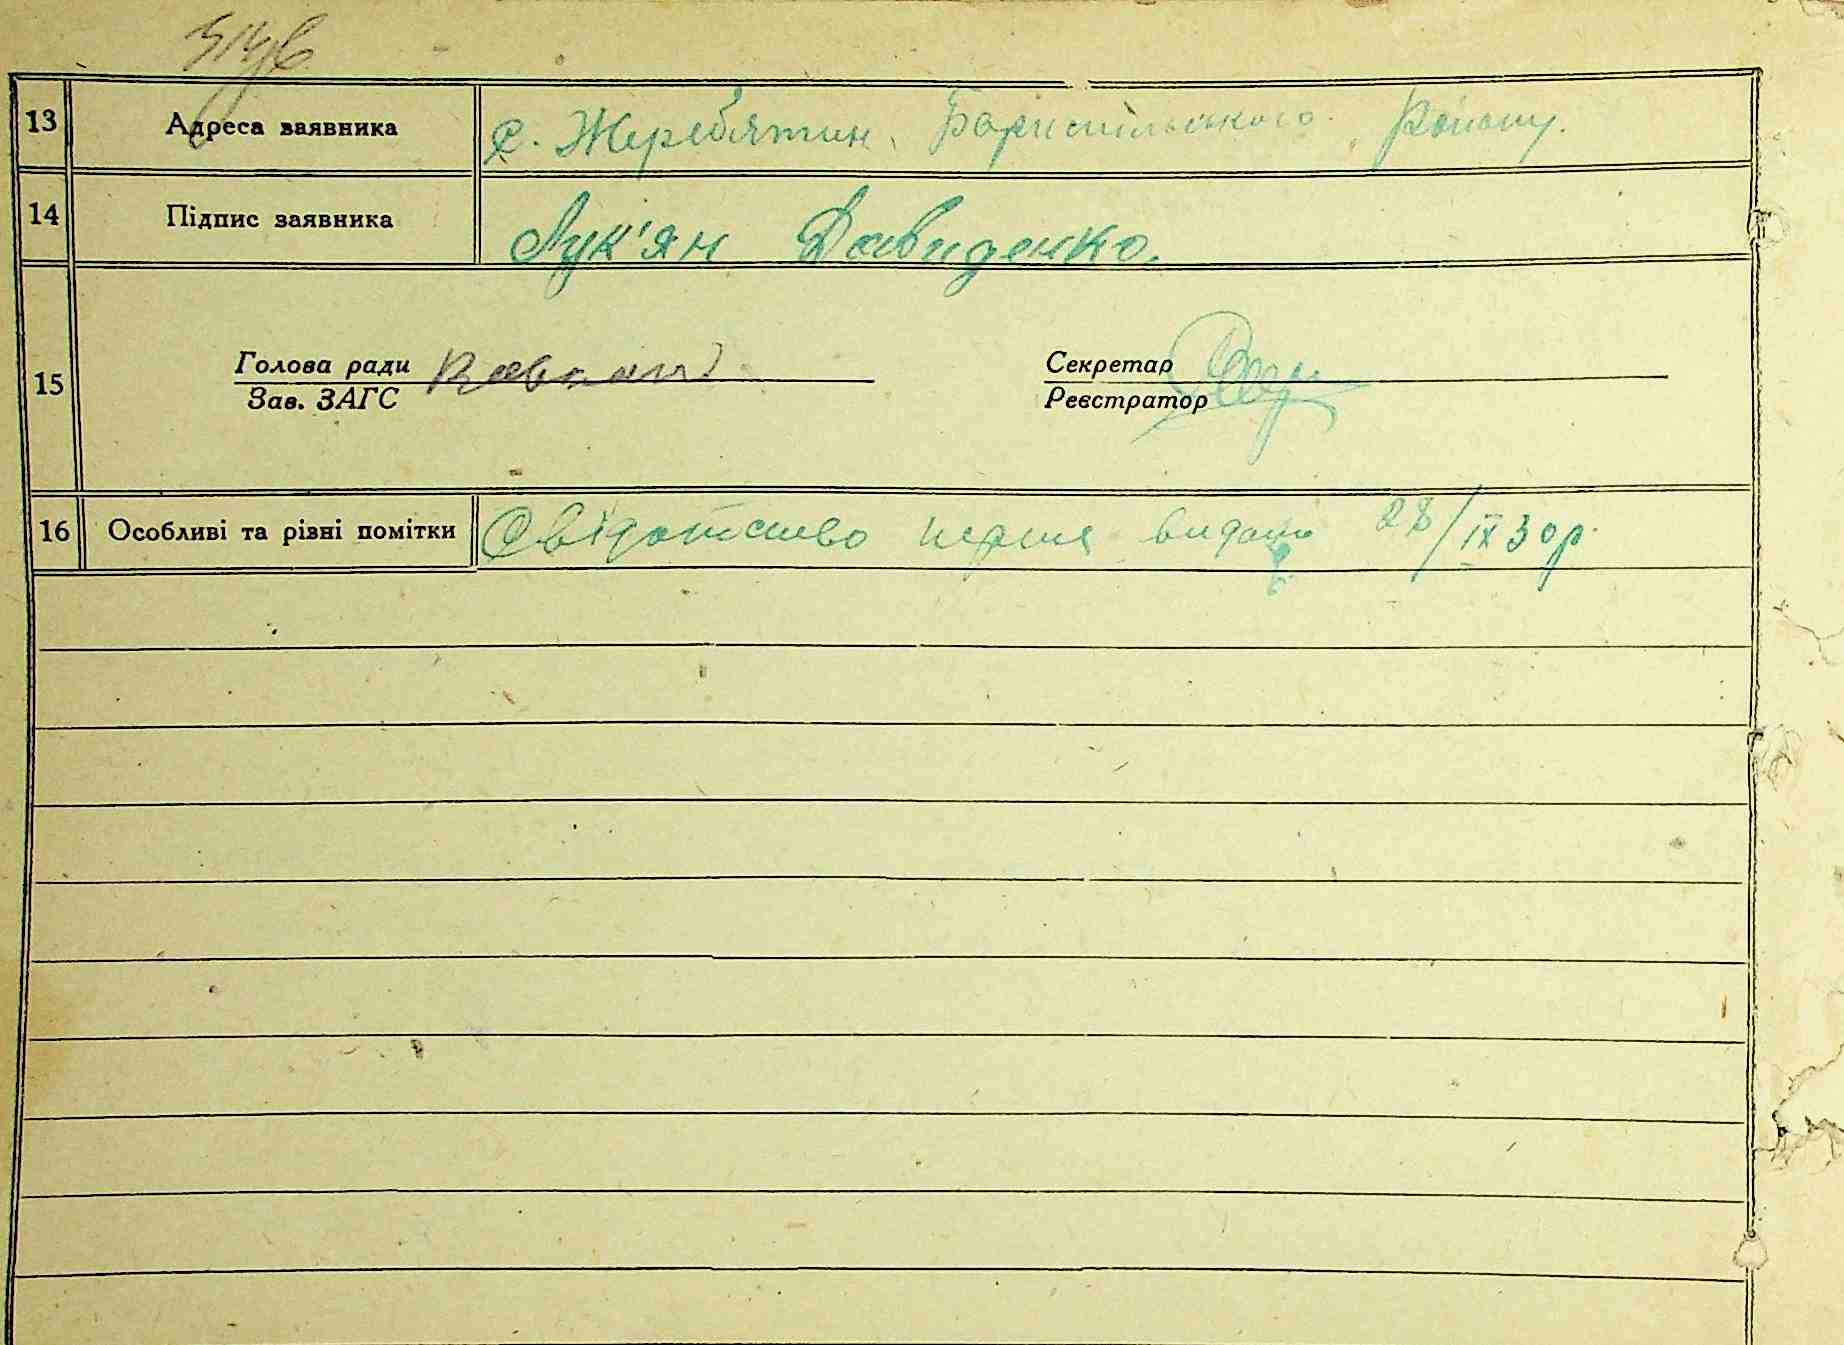 13 Адреса заявника с. Жеребятин, Бориспільського Району.
14 Підпис заявника Лук'ян Давиденко.
15
Голова ради Секретар
Зав. ЗАГС Реєстратор
16 Особливі та різні помітки Свідотство перше видано 28/IX 30р.